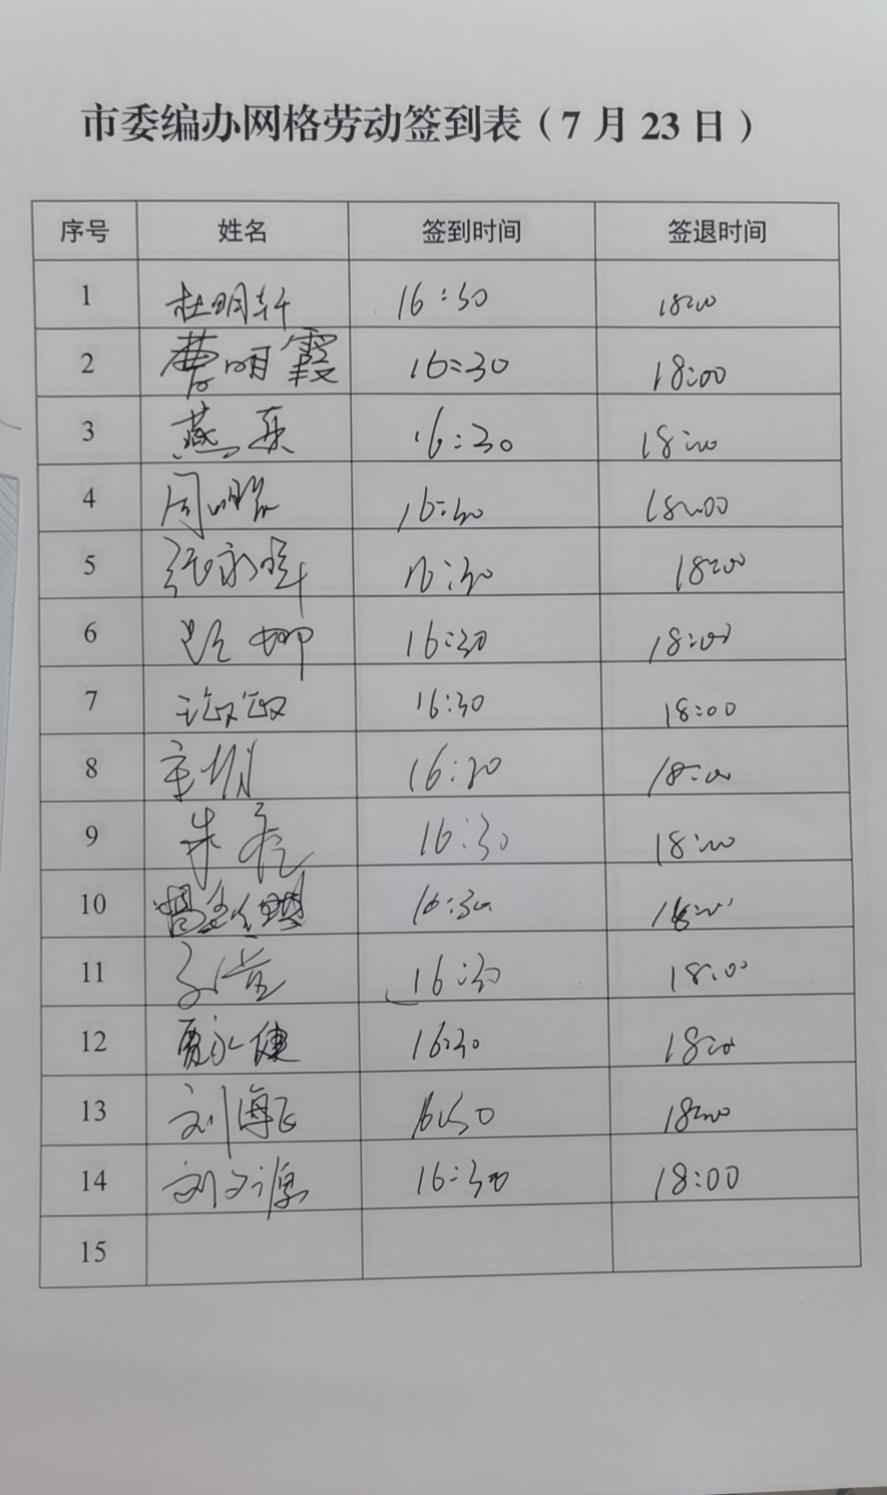 市委编办网格劳动签到表（7月23日）
序号 姓名 签到时间 签退时间
1 杜明轩 16:30 18:00
2 曹明霞 16:30 18:00
3 燕 16:30 18:00
4 周 16:30 18:00
5 张永 16:30 18:00
6 娜 16:30 18:00
7 16:30 18:00
8 16:30 18:00
9 朱亮 16:30 18:00
10 16:30 18:00
11 16:30 18:00
12 贾永健 16:30 18:00
13 刘海飞 16:30 18:00
14 刘文源 16:30 18:00
15